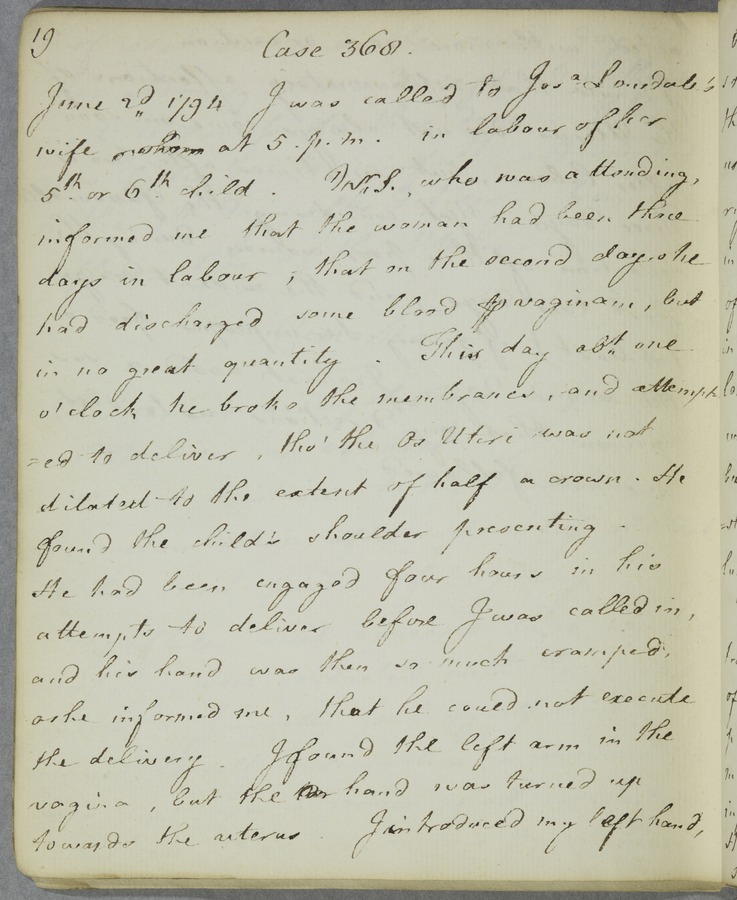 19
Case 368.
June 2d 1794 I was called to Josa Lonsdale's
wife at 5. p. m. in labour of her
5th or 6th child. W.S., who was attending,
informed me that the woman had been three
days in labour, that on the second day she
had discharged some blood p vaginam, but
in no great quantity. This day abt one
o'clock he broke the membranes, and attempt
=ed to deliver, tho' the Os Uteri was not
dilated to the extent of half a crown. He
found the child's shoulder presenting.
He had been engaged four hours in his
attempts to deliver before I was called in,
and his hand was then so much cramped,
as he informed me, that he could not execute
the delivery. I found the left arm in the
vagina, but the hand was turned up
towards the uterus. I introduced my left hand,